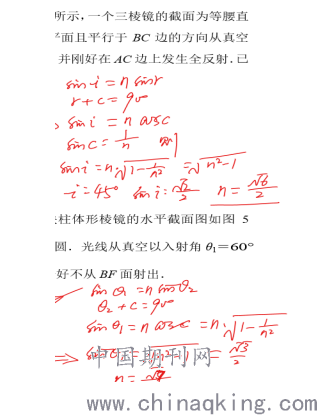 所示，一个三棱镜的截面为等腰直
面且平行于 BC 边的方向从真空
并刚好在 AC 边上发生全反射.已
sin i = n sin r
r + c = 90°
sin i = n cos c
sin c = 1/n 则
sin i = n√(1 - 1/n²) = √(n² - 1)
i = 45° sin i = √2/2 n = √6/2
柱体形棱镜的水平截面图如图 5
圆．光线从真空以入射角 θ₁=60°
好不从 BF 面射出．
sin θ₁ = n sin θ₂
θ₂ + c = 90°
sin θ₁ = n cos c = n·√(1 - 1/n²)
= √3/2
中国期刊网
n =
www.chinaqking.com